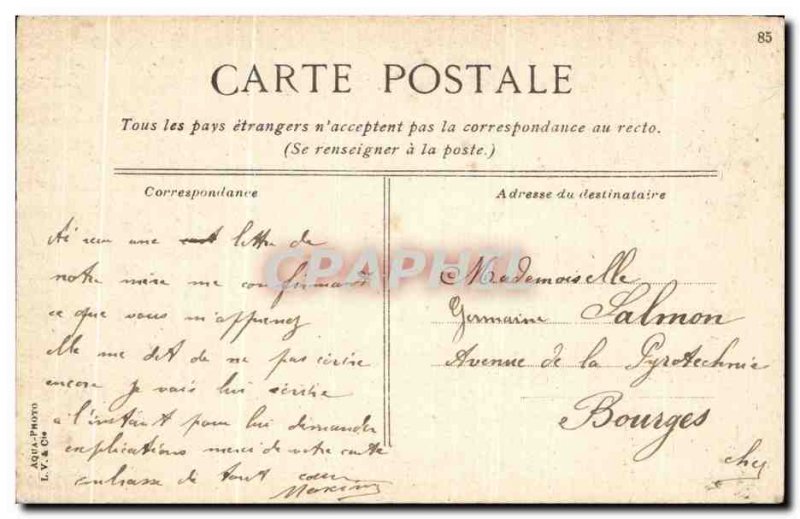 85
CARTE POSTALE
Tous les pays étrangers n'acceptent pas la correspondance au recto.
(Se renseigner à la poste.)
Correspondance
Ai reçu une lettre de
notre mère me confirmant
ce que vous m'apprenez
elle me dit de ne pas écrire
encore je vais lui écrire
à l'instant pour lui demander
explications merci de votre carte
embrasse de tout cœur
Adresse du destinataire
Mademoiselle
Germaine Salmon
Avenue de la Pyrotechnie
Bourges
Cher
AQUA-PHOTO
L. V. & Cie
CPAPHIL